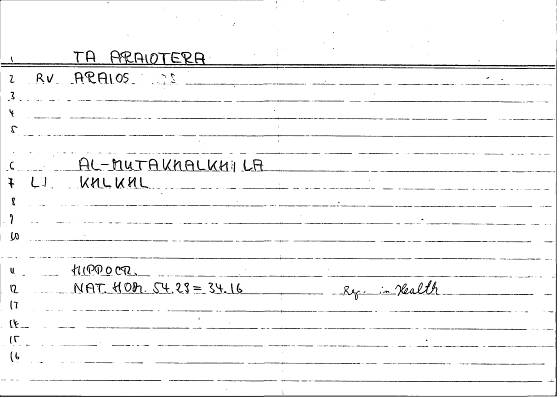 1 TA ARAIOTERA
2 RV ARAIOS
3
4
5
6 AL-MUTAKHALKHILA
7 LJ KHLKHL
8
9
10
11 HIPPOCR.
12 NAT. HOM. 54.23 = 34.16 Reg. in Health
13
14
15
16